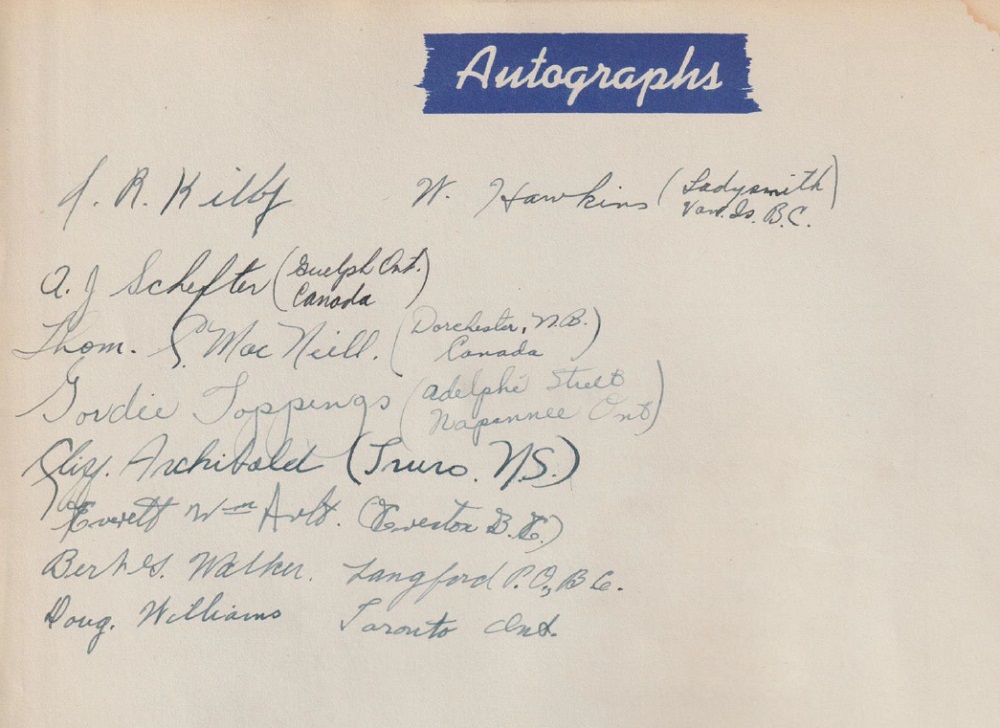 Autographs
J. R. Kilby W. Hawkins (Ladysmith
Van. Is. B.C.)
A. J Schefter (Guelph Ont.
Canada)
Thom. S. MacNeill. (Dorchester, N.B.
Canada)
Gordie Toppings (Adelphi Street
Napannee Ont)
Eliz. Archibald (Truro. N.S.)
Everett Wm B.C.)
Bert Walker. Langford P.O., B.C.
Doug. Williams Toronto Ont.